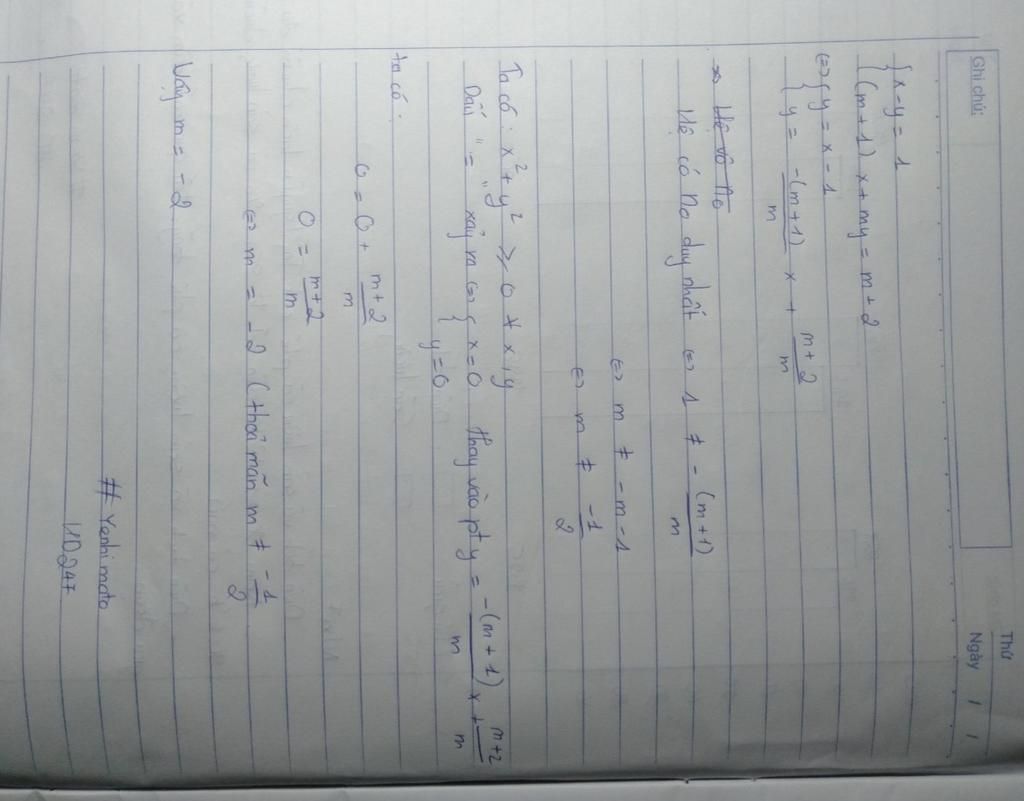 Thứ
Ngày / /
Ghi chú:
{ x - y = 1
{ (m+1) x + my = m+2
⇔ { y = x - 1
{ y = -(m+1)/m x + m+2/m
Hệ vô no
Hệ có no duy nhất ⇔ 1 ≠ -(m+1)/m
⇔ m ≠ -m-1
⇔ m ≠ -1/2
Ta có: x² + y² ≥ 0 ∀ x, y
Dấu "=" xảy ra ⇔ { x = 0 thay vào pt y = -(m+1)/m x + m+2/m
y = 0
ta có:
0 = 0 + m+2/m
0 = m+2/m
⇔ m = -2 (thỏa mãn m ≠ -1/2)
Vậy m = -2
# Yenhimato